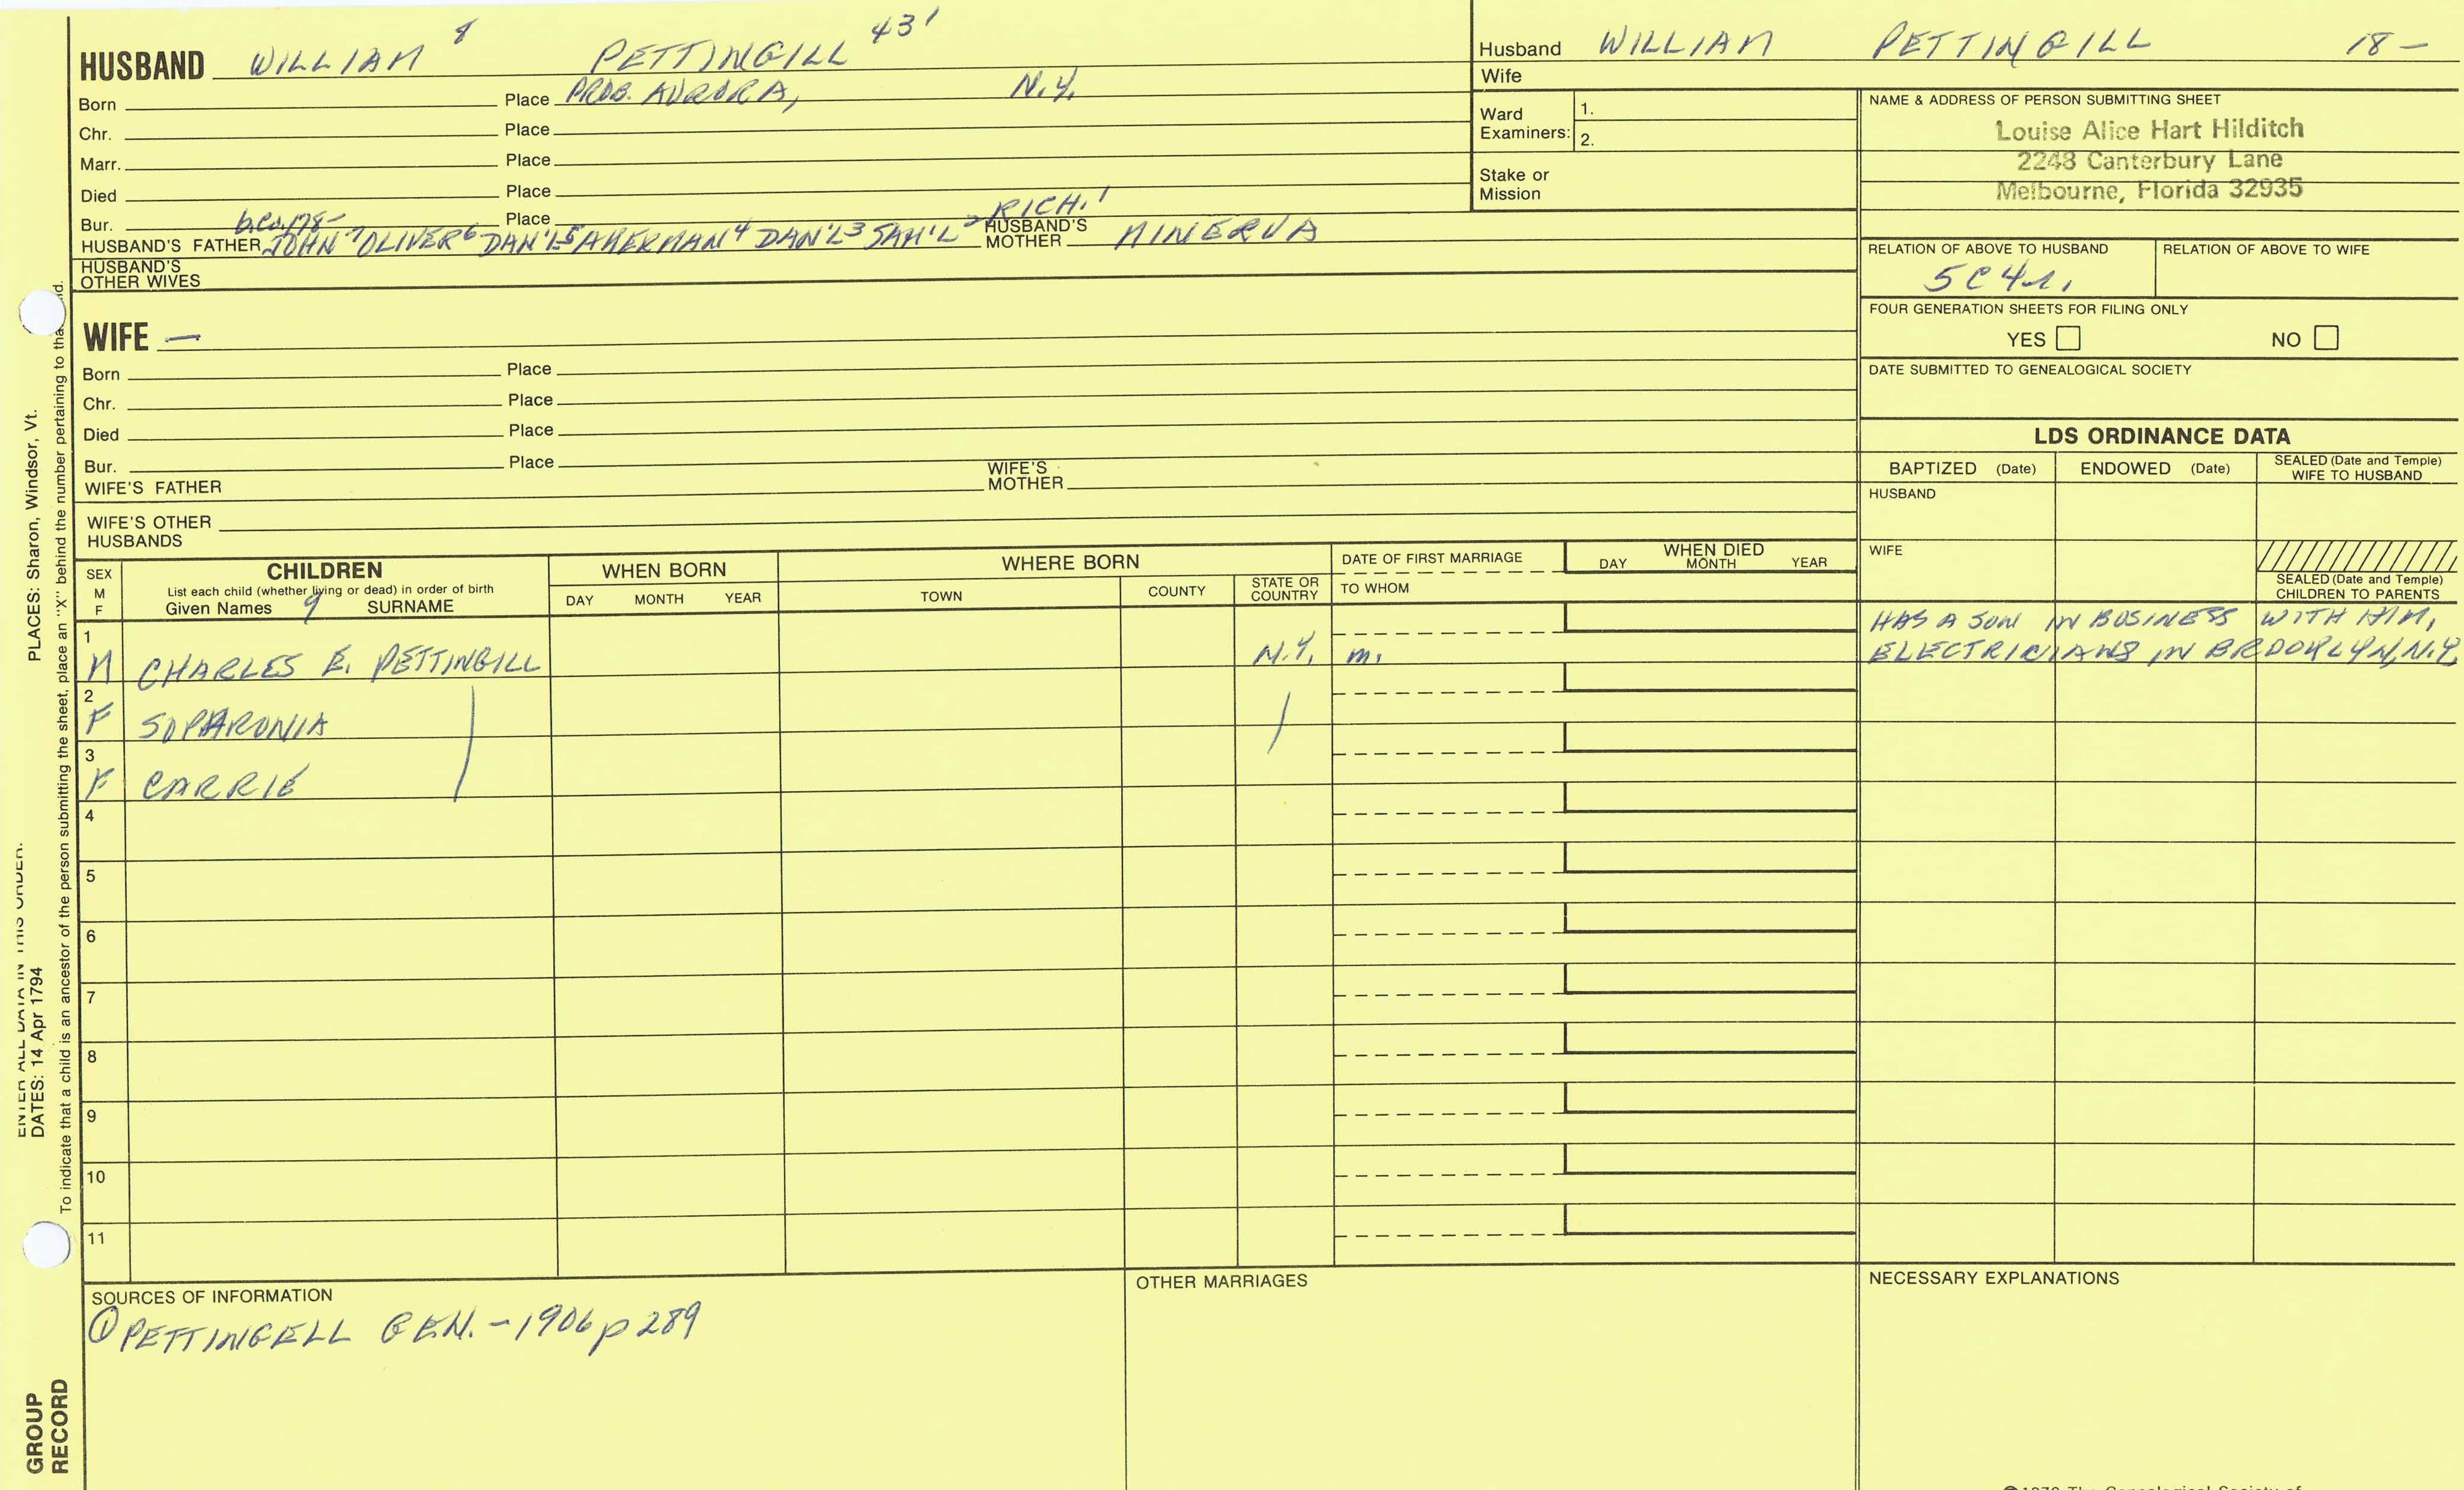 HUSBAND WILLIAM 8 PETTINGILL 43'
Born Place PROB. AURORA, N.Y.
Chr. Place
Marr. Place
Died Place
Bur. Place
HUSBAND'S FATHER JOHN 7 OLIVER 6 DAN'L 5 AKERMAN 4 DAN'L 3 SAM'L 2 RICH. 1 HUSBAND'S MOTHER MINERVA
HUSBAND'S OTHER WIVES
WIFE —
Born Place
Chr. Place
Died Place
Bur. Place
WIFE'S FATHER WIFE'S MOTHER
WIFE'S OTHER HUSBANDS
Husband WILLIAM PETTINGILL 18 —
Wife
Ward Examiners: 1.
2.
Stake or Mission
NAME & ADDRESS OF PERSON SUBMITTING SHEET
Louise Alice Hart Hilditch
2248 Canterbury Lane
Melbourne, Florida 32935
RELATION OF ABOVE TO HUSBAND RELATION OF ABOVE TO WIFE
5C4r.
FOUR GENERATION SHEETS FOR FILING ONLY
YES NO
DATE SUBMITTED TO GENEALOGICAL SOCIETY
LDS ORDINANCE DATA
BAPTIZED (Date) ENDOWED (Date) SEALED (Date and Temple) WIFE TO HUSBAND
HUSBAND
WIFE
SEALED (Date and Temple) CHILDREN TO PARENTS
SEX M F CHILDREN WHEN BORN WHERE BORN DATE OF FIRST MARRIAGE WHEN DIED
List each child (whether living or dead) in order of birth
Given Names 9 SURNAME DAY MONTH YEAR TOWN COUNTY STATE OR COUNTRY TO WHOM DAY MONTH YEAR
1 M CHARLES E. PETTINGILL N.Y. m.
HAS A SON IN BUSINESS WITH HIM,
ELECTRICIANS IN BROOKLYN, N.Y.
2 F SOPHRONIA
3 F CARRIE
4
5
6
7
8
9
10
11
SOURCES OF INFORMATION
① PETTINGELL GEN. - 1906 p 289
OTHER MARRIAGES
NECESSARY EXPLANATIONS
ENTER ALL DATA IN THIS ORDER:
DATES: 14 Apr 1794
PLACES: Sharon, Windsor, Vt.
To indicate that a child is an ancestor of the person submitting the sheet, place an "X" behind the number pertaining to
GROUP
RECORD